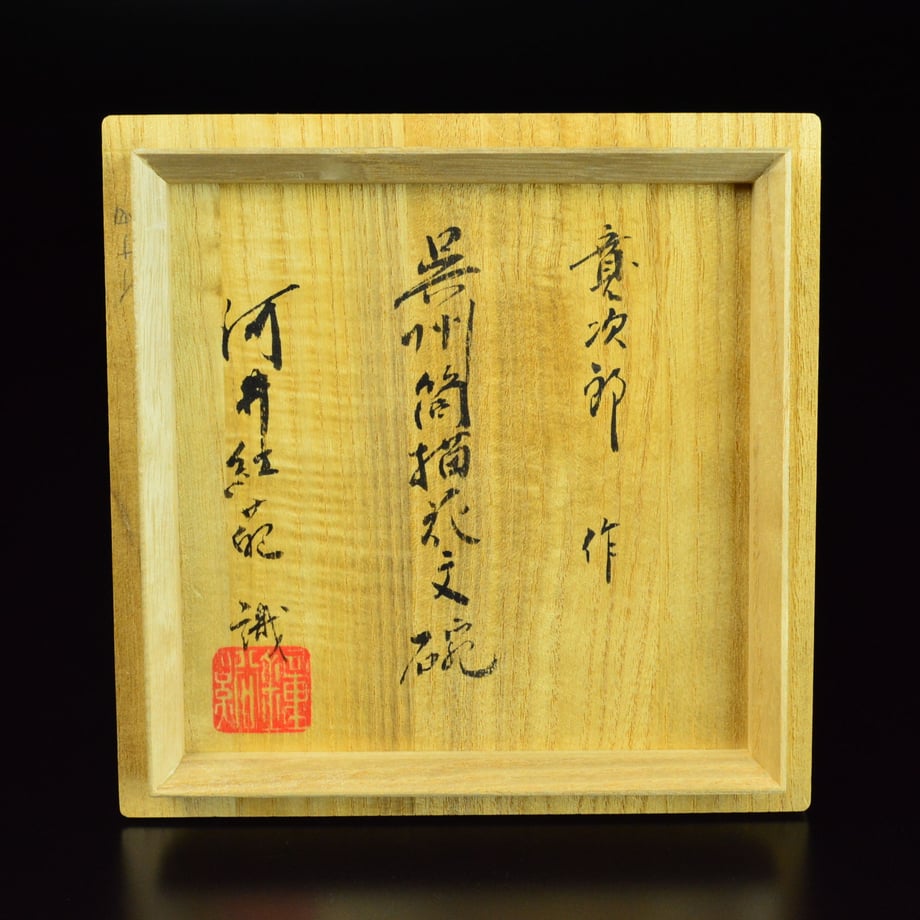 寛次郎 作
呉州筒描花文碗
河井紅葩 識